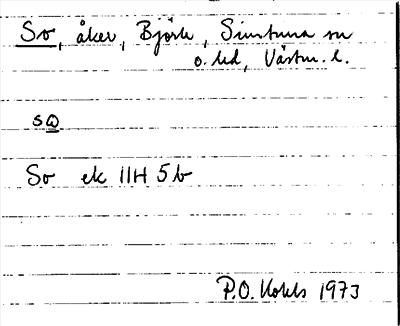 So, åker, Björke, Simtuna sn
o. hd, Västm. l.
sω
So ek 11H 5b
P.O. 1973